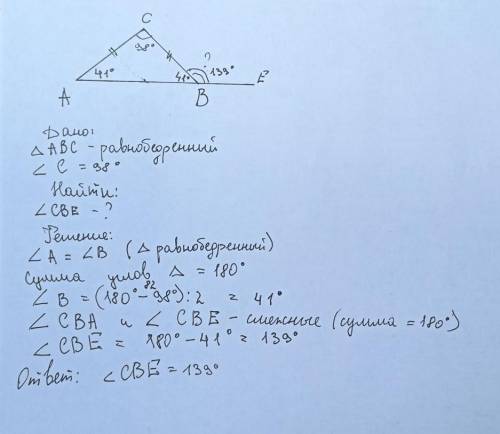 C
98°
?
41°
41°
139°
A
B
E
Дано:
△ ABC - равнобедренный
∠ C = 98°
Найти:
∠CBE - ?
Решение:
∠A = ∠B (△ равнобедренный)
Сумма углов △ = 180°
82
∠ B = (180° - 98°) : 2 = 41°
∠ CBA и ∠ CBE - смежные (сумма = 180°)
∠ CBE = 180° - 41° = 139°
Ответ: ∠CBE = 139°